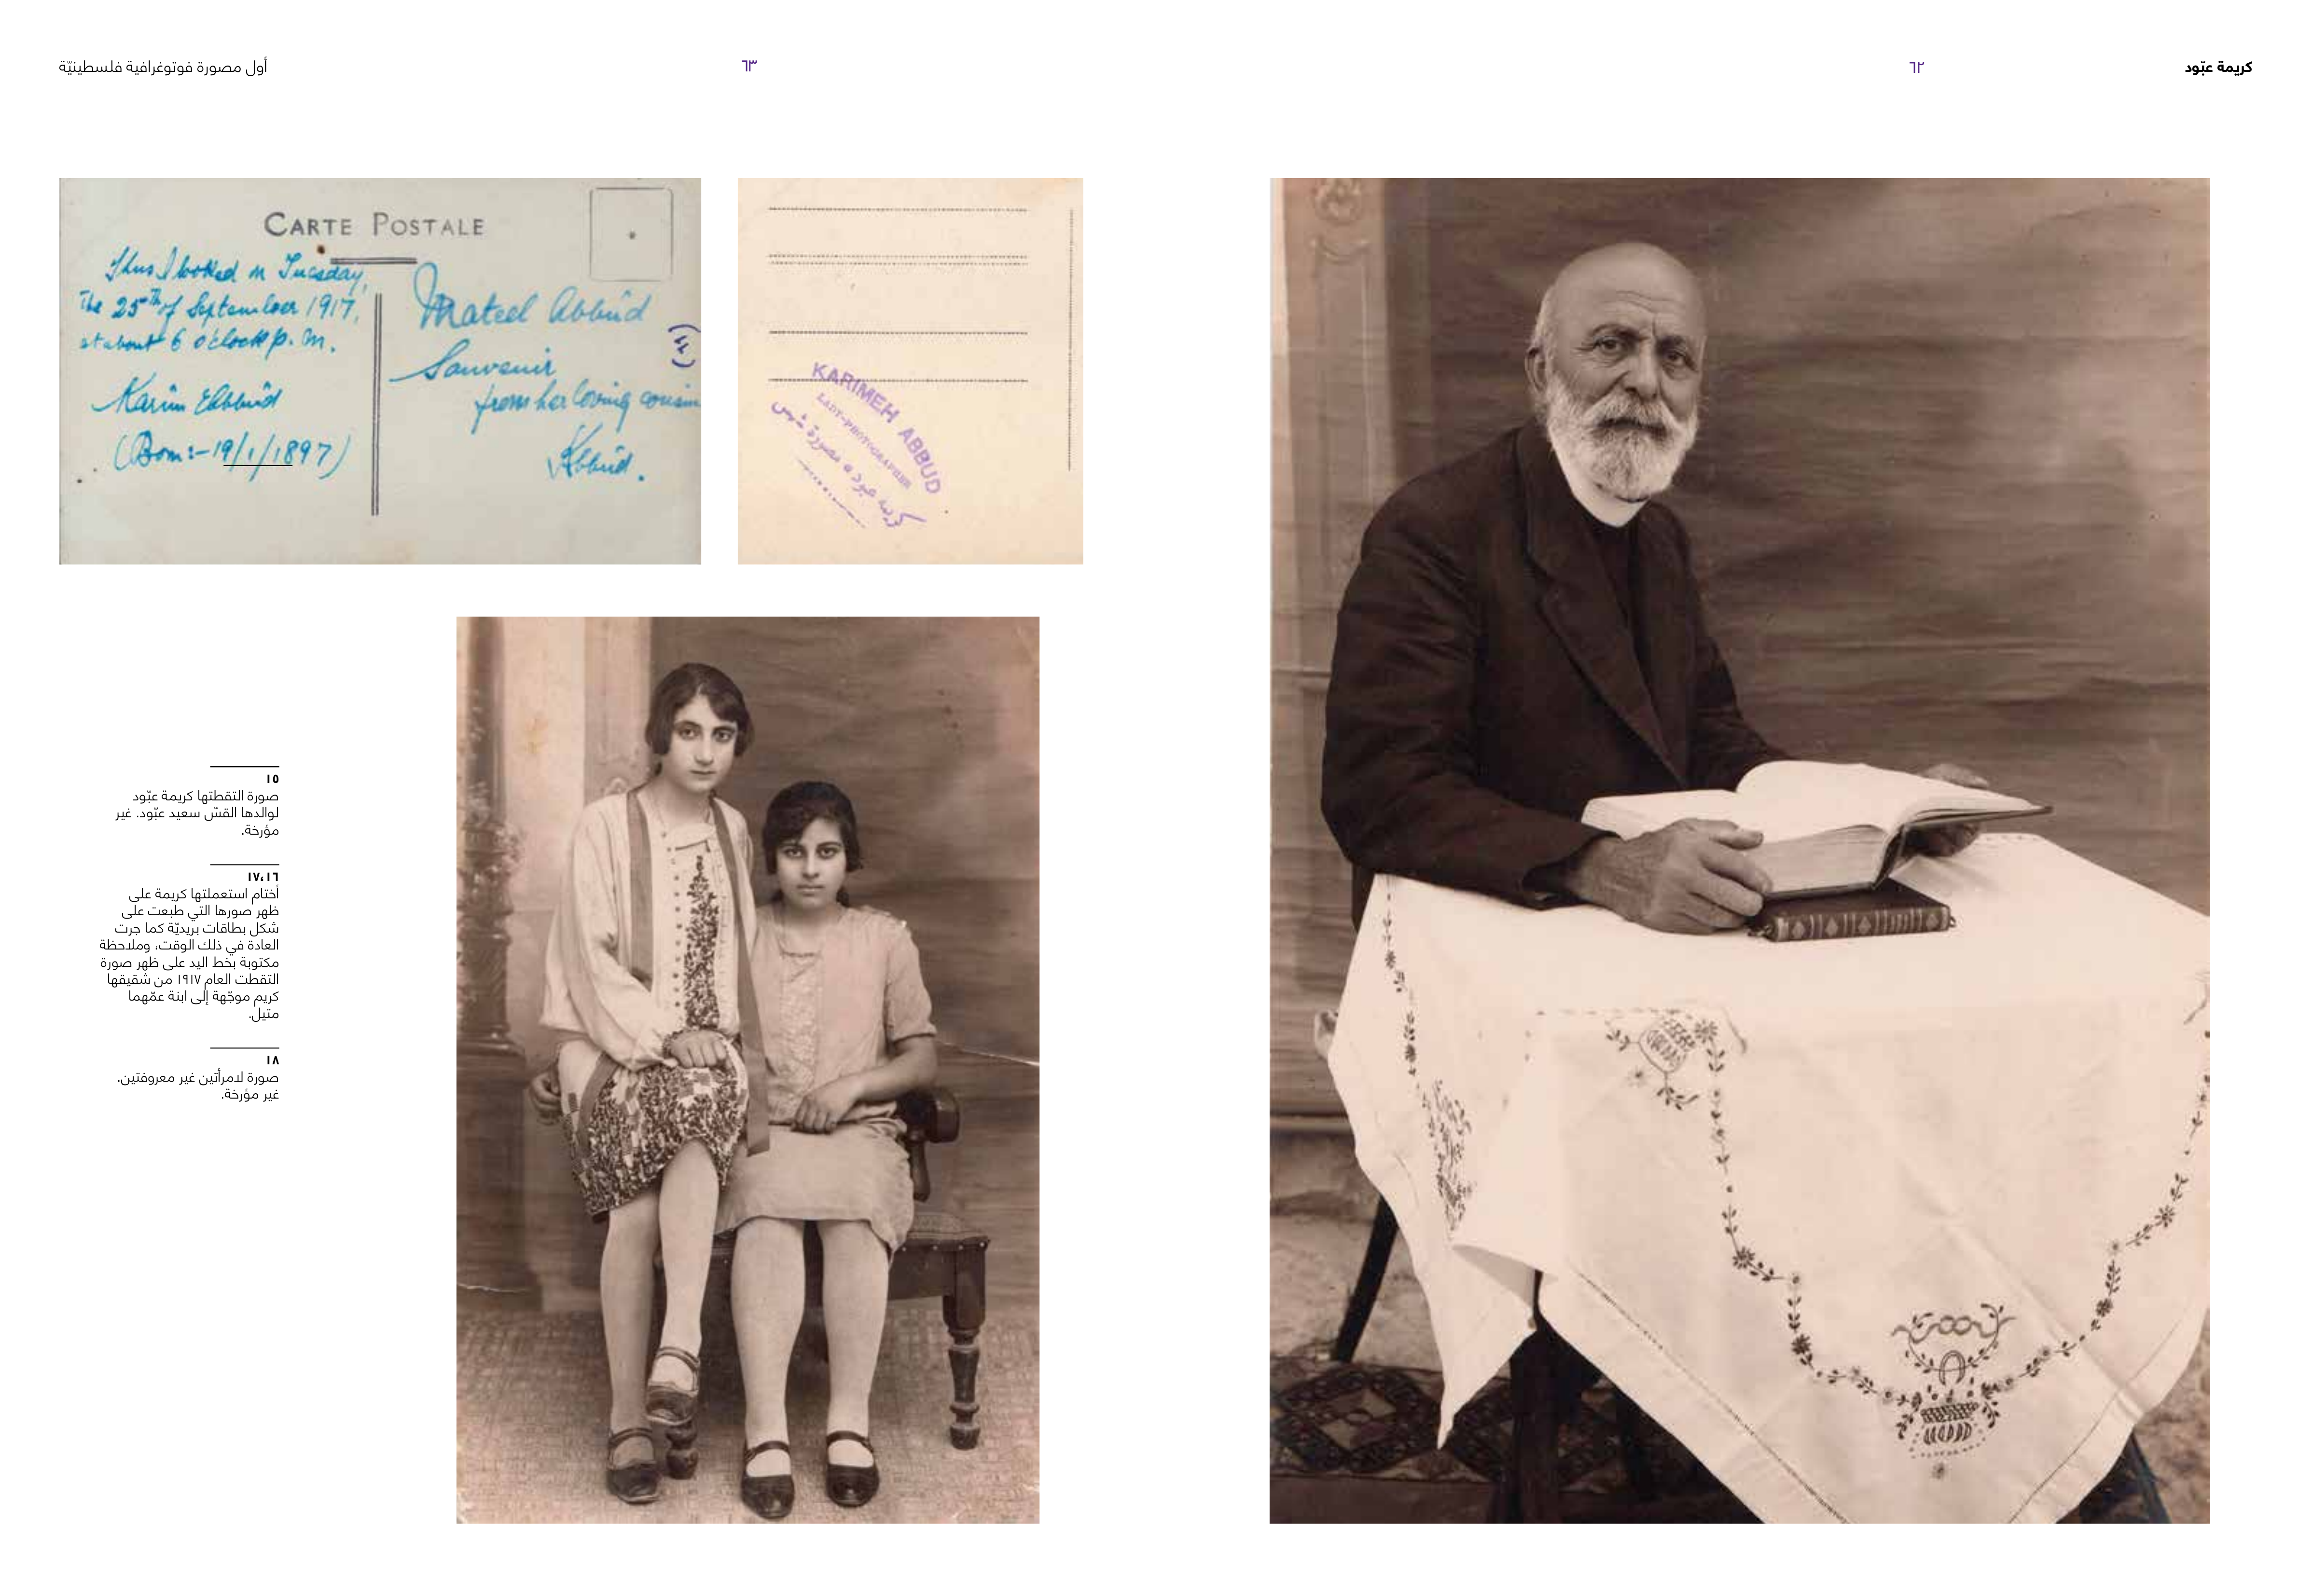 كريمة عبّود
٦٢
٦٣
أول مصورة فوتوغرافية فلسطينيّة
KARIMEH ABBUD
LADY-PHOTOGRAPHER
كريمه عبود مصورة شمس
CARTE POSTALE
Thus I looked on Tuesday,
The 25th of September 1917,
at about 6 o'clock p. m.
Karim Abbûd
(Born:-19/1/1897)
Mateel Abbûd
Souvenir
from her loving cousin
KAbbûd.
١٥
صورة التقطتها كريمة عبّود
لوالدها القسّ سعيد عبّود. غير
مؤرخة.
١٧،١٦
أختام استعملتها كريمة على
ظهر صورها التي طبعت على
شكل بطاقات بريديّة كما جرت
العادة في ذلك الوقت، وملاحظة
مكتوبة بخط اليد على ظهر صورة
التقطت العام ١٩١٧ من شقيقها
كريم موجّهة إلى ابنة عمّهما
متيل.
١٨
صورة لامرأتين غير معروفتين.
غير مؤرخة.